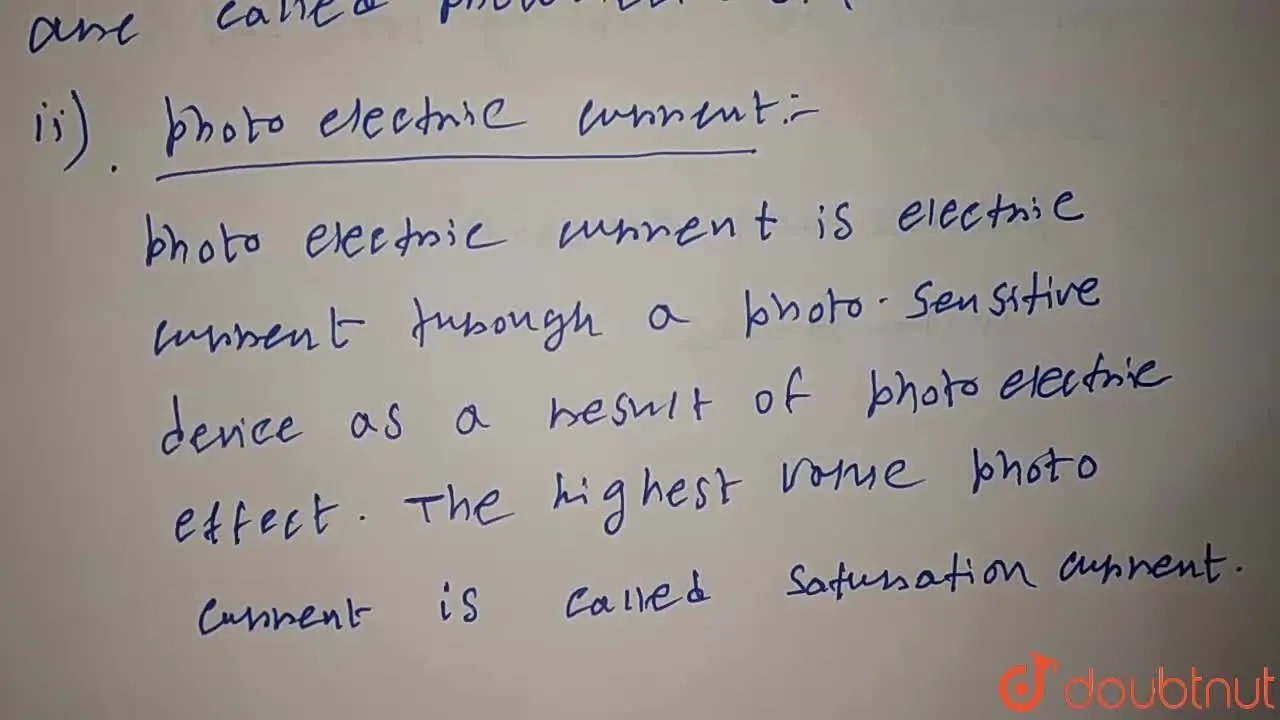 are called
ii). photo electric current:-
photo electric current is electric
current through a photo-sensitive
device as a result of photo electric
effect. The highest value photo
current is called saturation current.
doubtnut